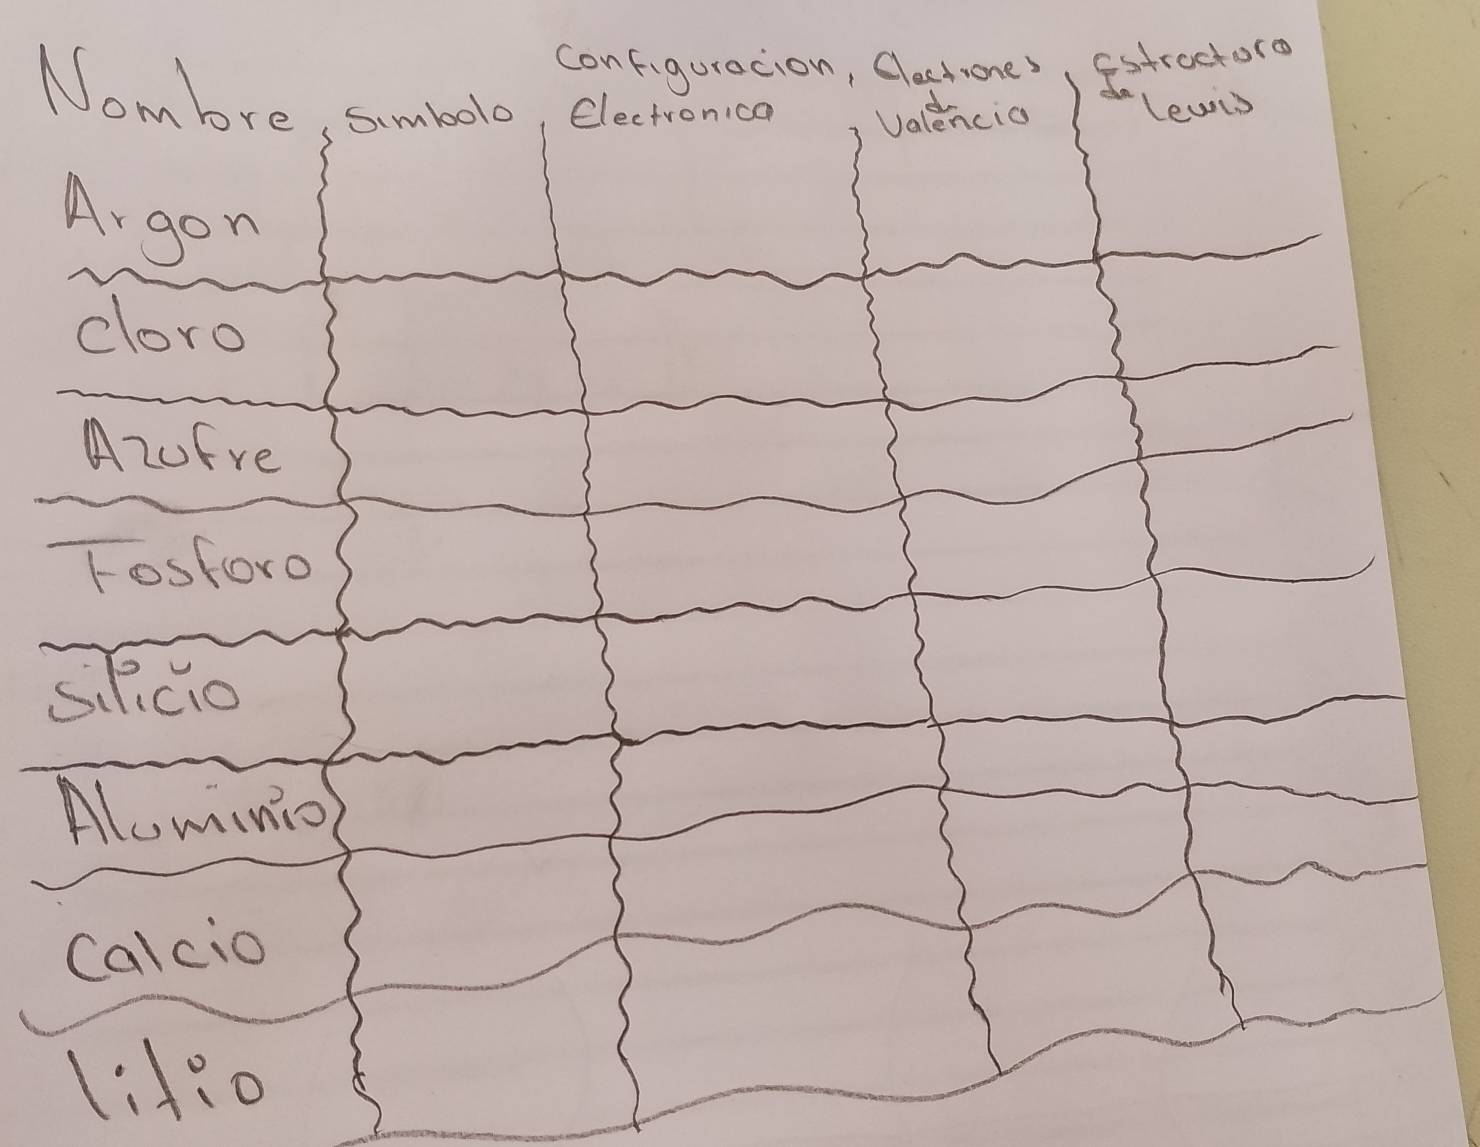 Nombre, Simbolo, Configuracion Electronica, Electrones de Valencia, Estructura de lewis
Argon
Cloro
Azufre
Fosforo
Silicio
Aluminio
Calcio
litio